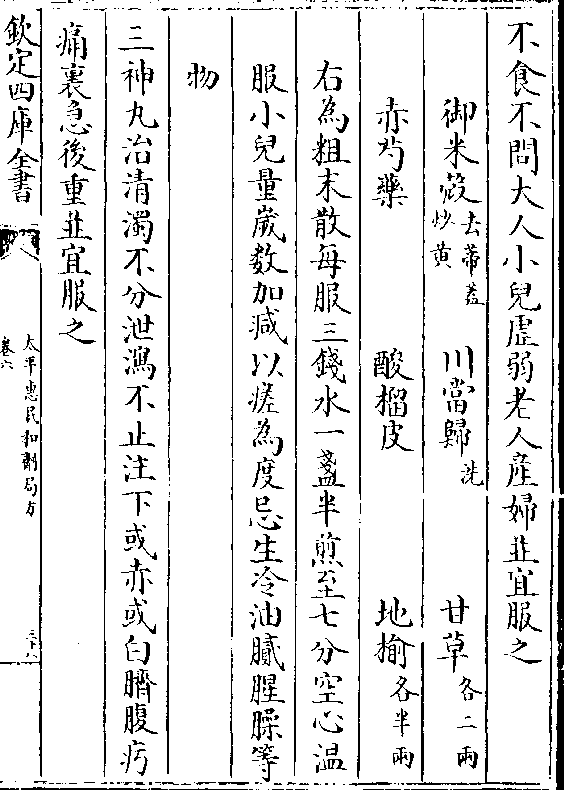 不食不問大人小兒虛弱老人産婦並宜服之
御米殼去蒂蓋炒黄 川當歸洗 甘草各二兩
赤芍藥 酸榴皮 地榆各半兩
右為粗末散每服三錢水一盞半煎至七分空心温
服小兒量嵗數加減以瘥為度忌生冷油膩腥臊等
物
三神丸治清濁不分泄瀉不止注下或赤或白臍腹㽲
痛裏急後重並宜服之
欽定四庫全書
太平惠民和劑局方
卷六